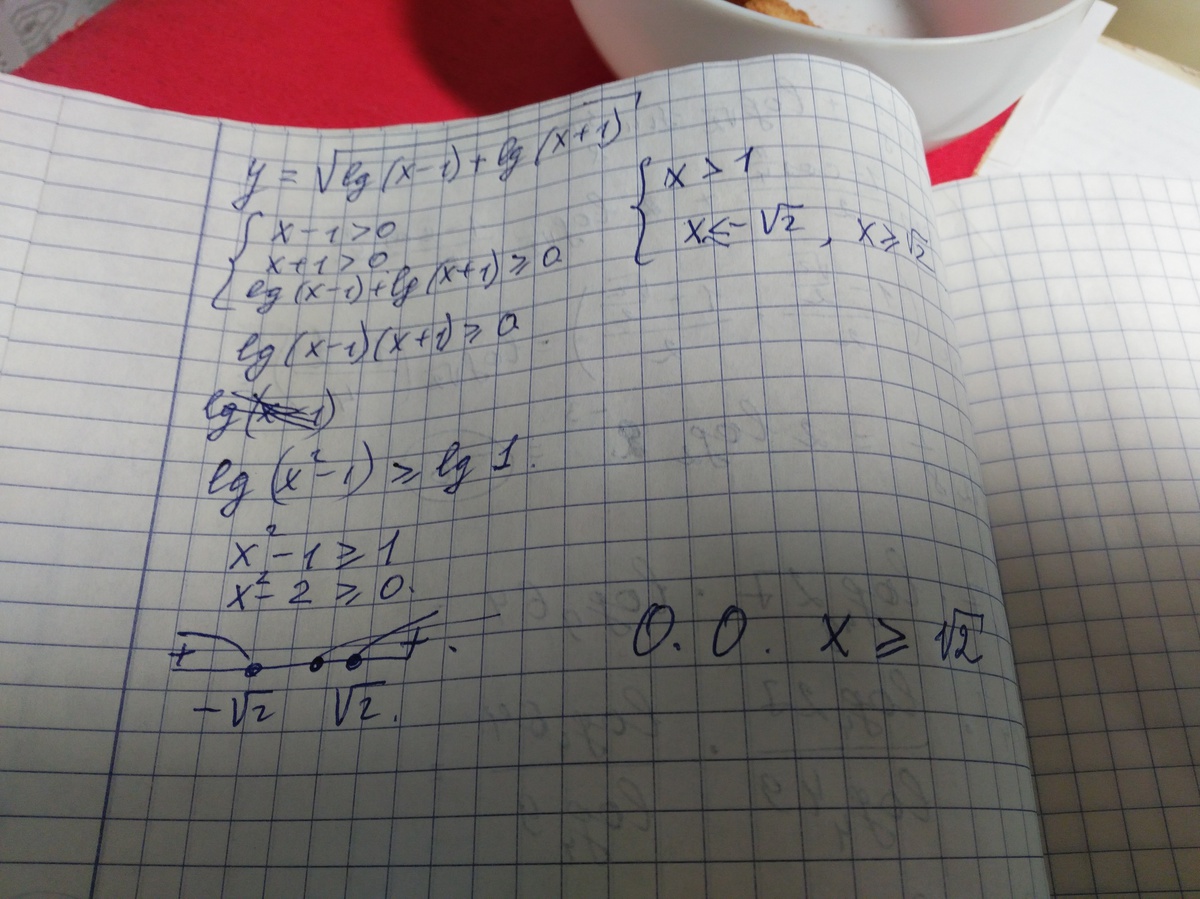 y = √lg(x-1)+lg(x+1)
{ x-1>0
x+1>0
lg(x-1)+lg(x+1)≥0
lg(x-1)(x+1)≥0
lg(x²-1)≥lg1.
x²-1≥1
x²-2≥0.
+ + .
-√2 √2.
{ x>1
x≤-√2, x≥√2
О.О. x≥√2